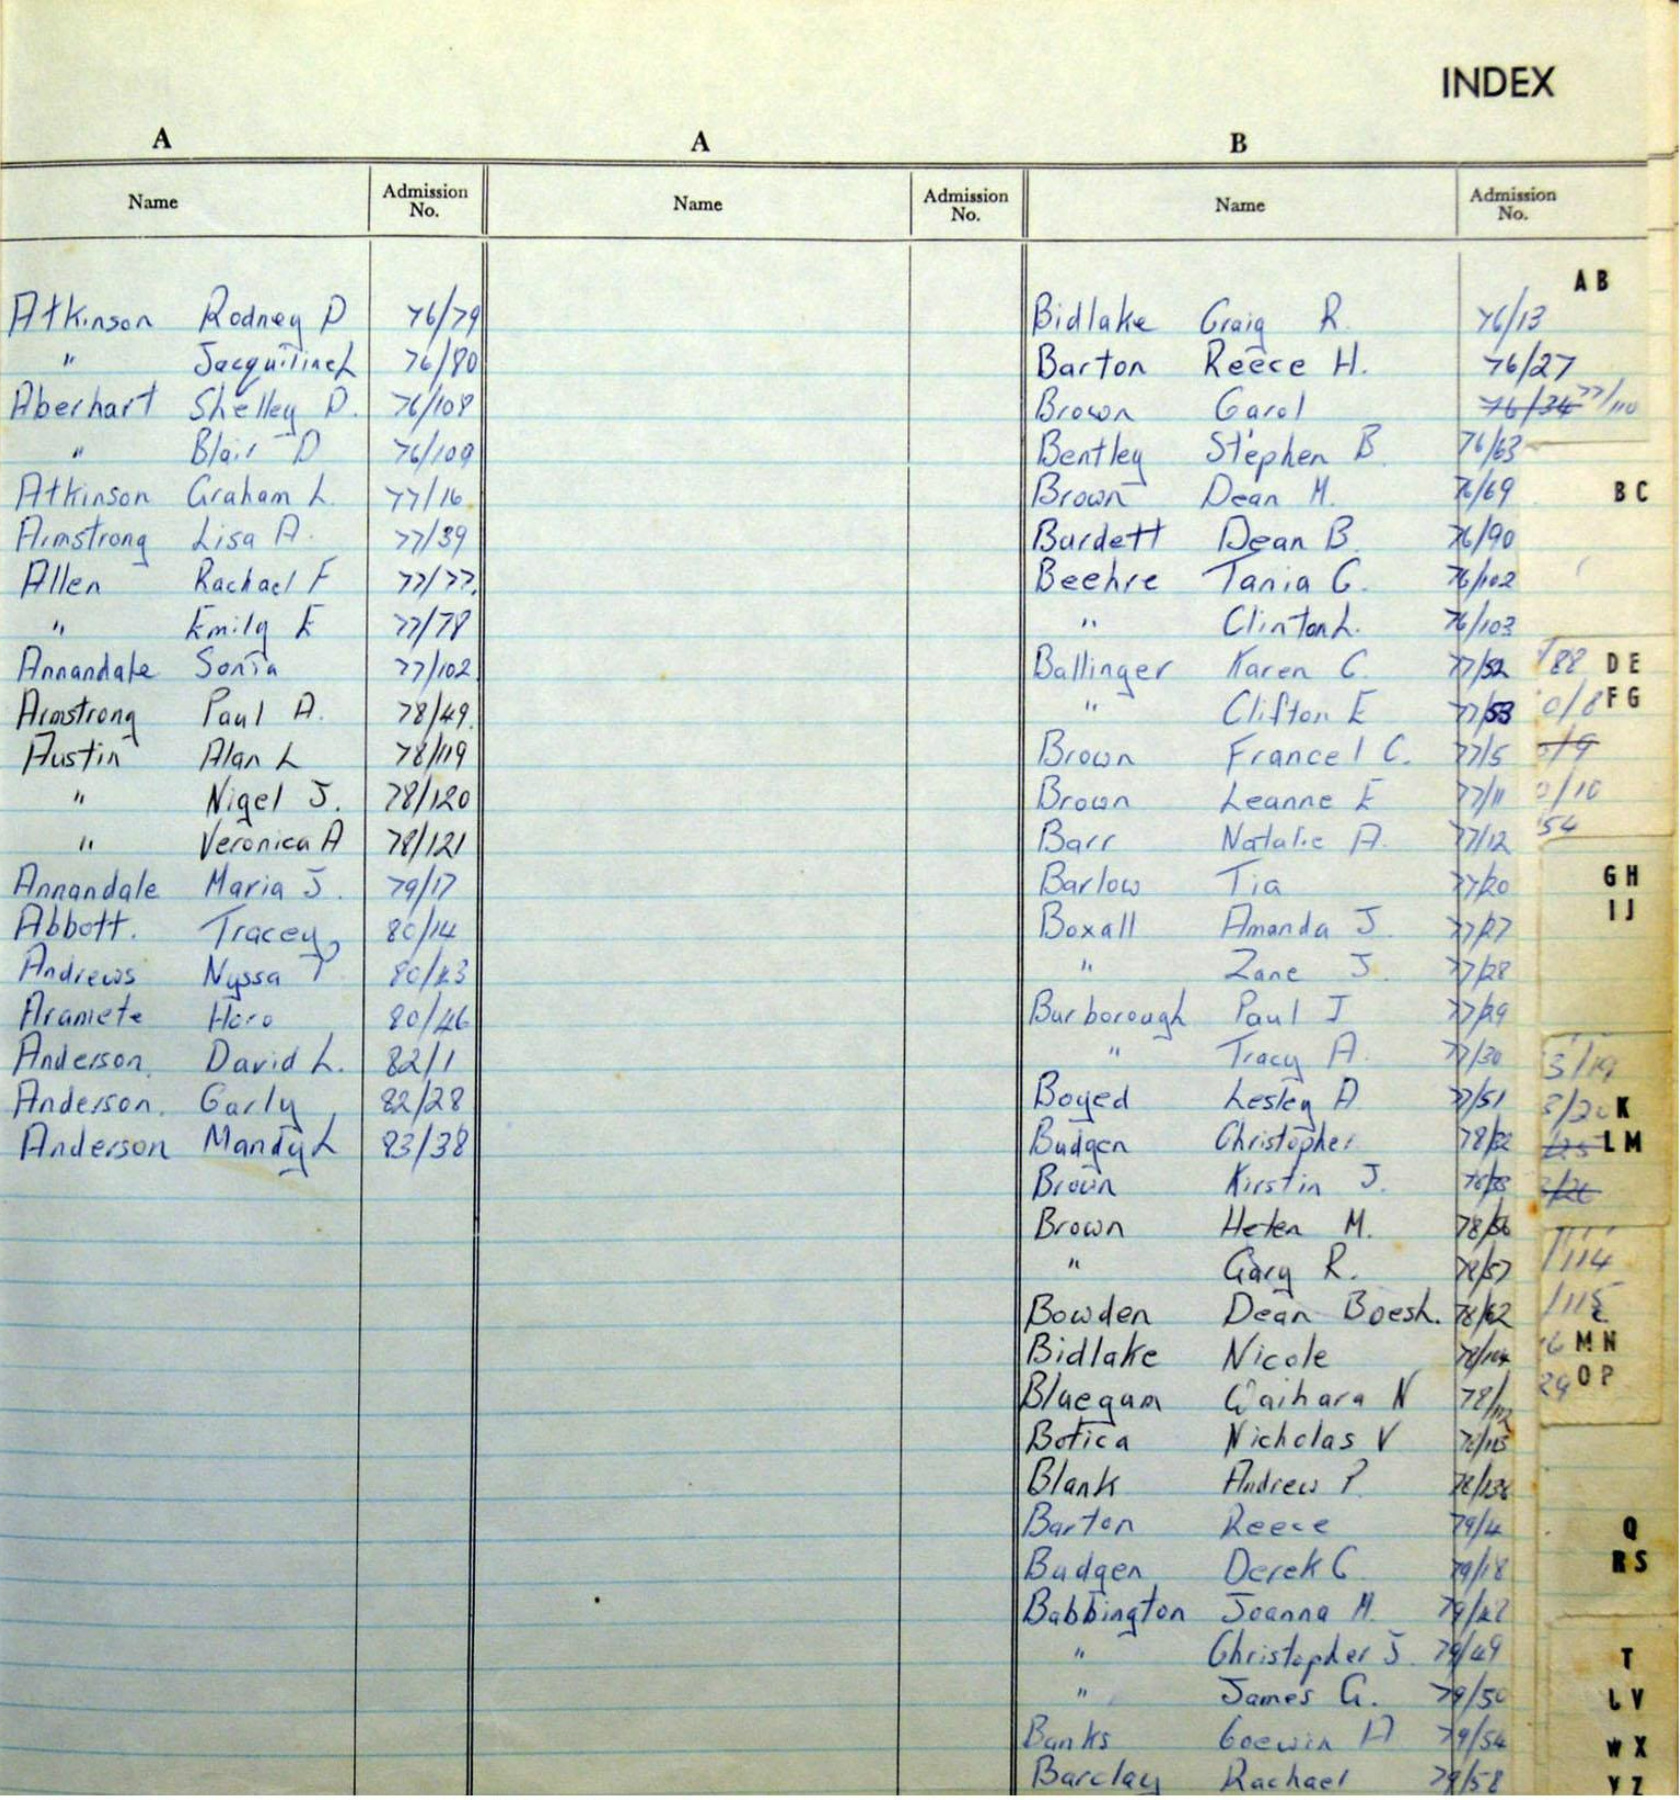 INDEX
A A B
Name Admission No. Name Admission No. Name Admission No.
Atkinson Rodney D 76/79
" 76/80
Aberhart Shelley D. 76/108
" Blair D 76/109
Atkinson Graham L. 77/16
Armstrong Lisa A. 77/39
Allen Rachael F 77/77
" Emily E 77/78
Annandale Sonia 77/102
Armstrong Paul A. 78/49
Austin Alan L 78/119
" Nigel J. 78/120
" Veronica A 78/121
Annandale Maria J. 79/17
Abbott. Tracey 80/14
Andrews Nyssa 80/43
Aramete Hero 80/46
Anderson David L. 82/1
Anderson. Carly 82/28
Anderson Mandy L 83/38
Bidlake Craig R. 76/13
Barton Reece H. 76/27
Brown Carol 76/34 77/110
Bentley Stephen B. 76/63
Brown Dean M. 76/69
Burdett Dean B. 76/90
Beehre Tania C. 76/102
" Clinton L. 76/103
Ballinger Karen C. 77/52
" Clifton E 77/53
Brown Francel C. 77/5
Brown Leanne E 77/11
Barr Natalie A. 77/12
Barlow Tia 77/20
Boxall Amanda J. 77/27
" Zane J. 77/28
Burborough Paul J 77/29
" Tracy A. 77/30
Boyed Lesley A 77/51
Budgen Christopher 78/32
Brown Kirstin J.
Brown Helen M. 78/56
" Gary R. 78/57
Bowden Dean Boesh. 78/62
Bidlake Nicole 78/104
Bluegum Waihara N 78/112
Botica Nicholas V 78/113
Blank Andrew P. 78/138
Barton Reece 79/4
Budgen Derek C 79/18
Babbington Joanna M. 79/48
" Christopher J. 79/49
" James G. 79/50
Banks Goewin A 79/54
Barclay Rachael 79/58
A B
B C
D E
F G
G H
I J
K
L M
M N
O P
Q
R S
T
U V
W X
Y Z